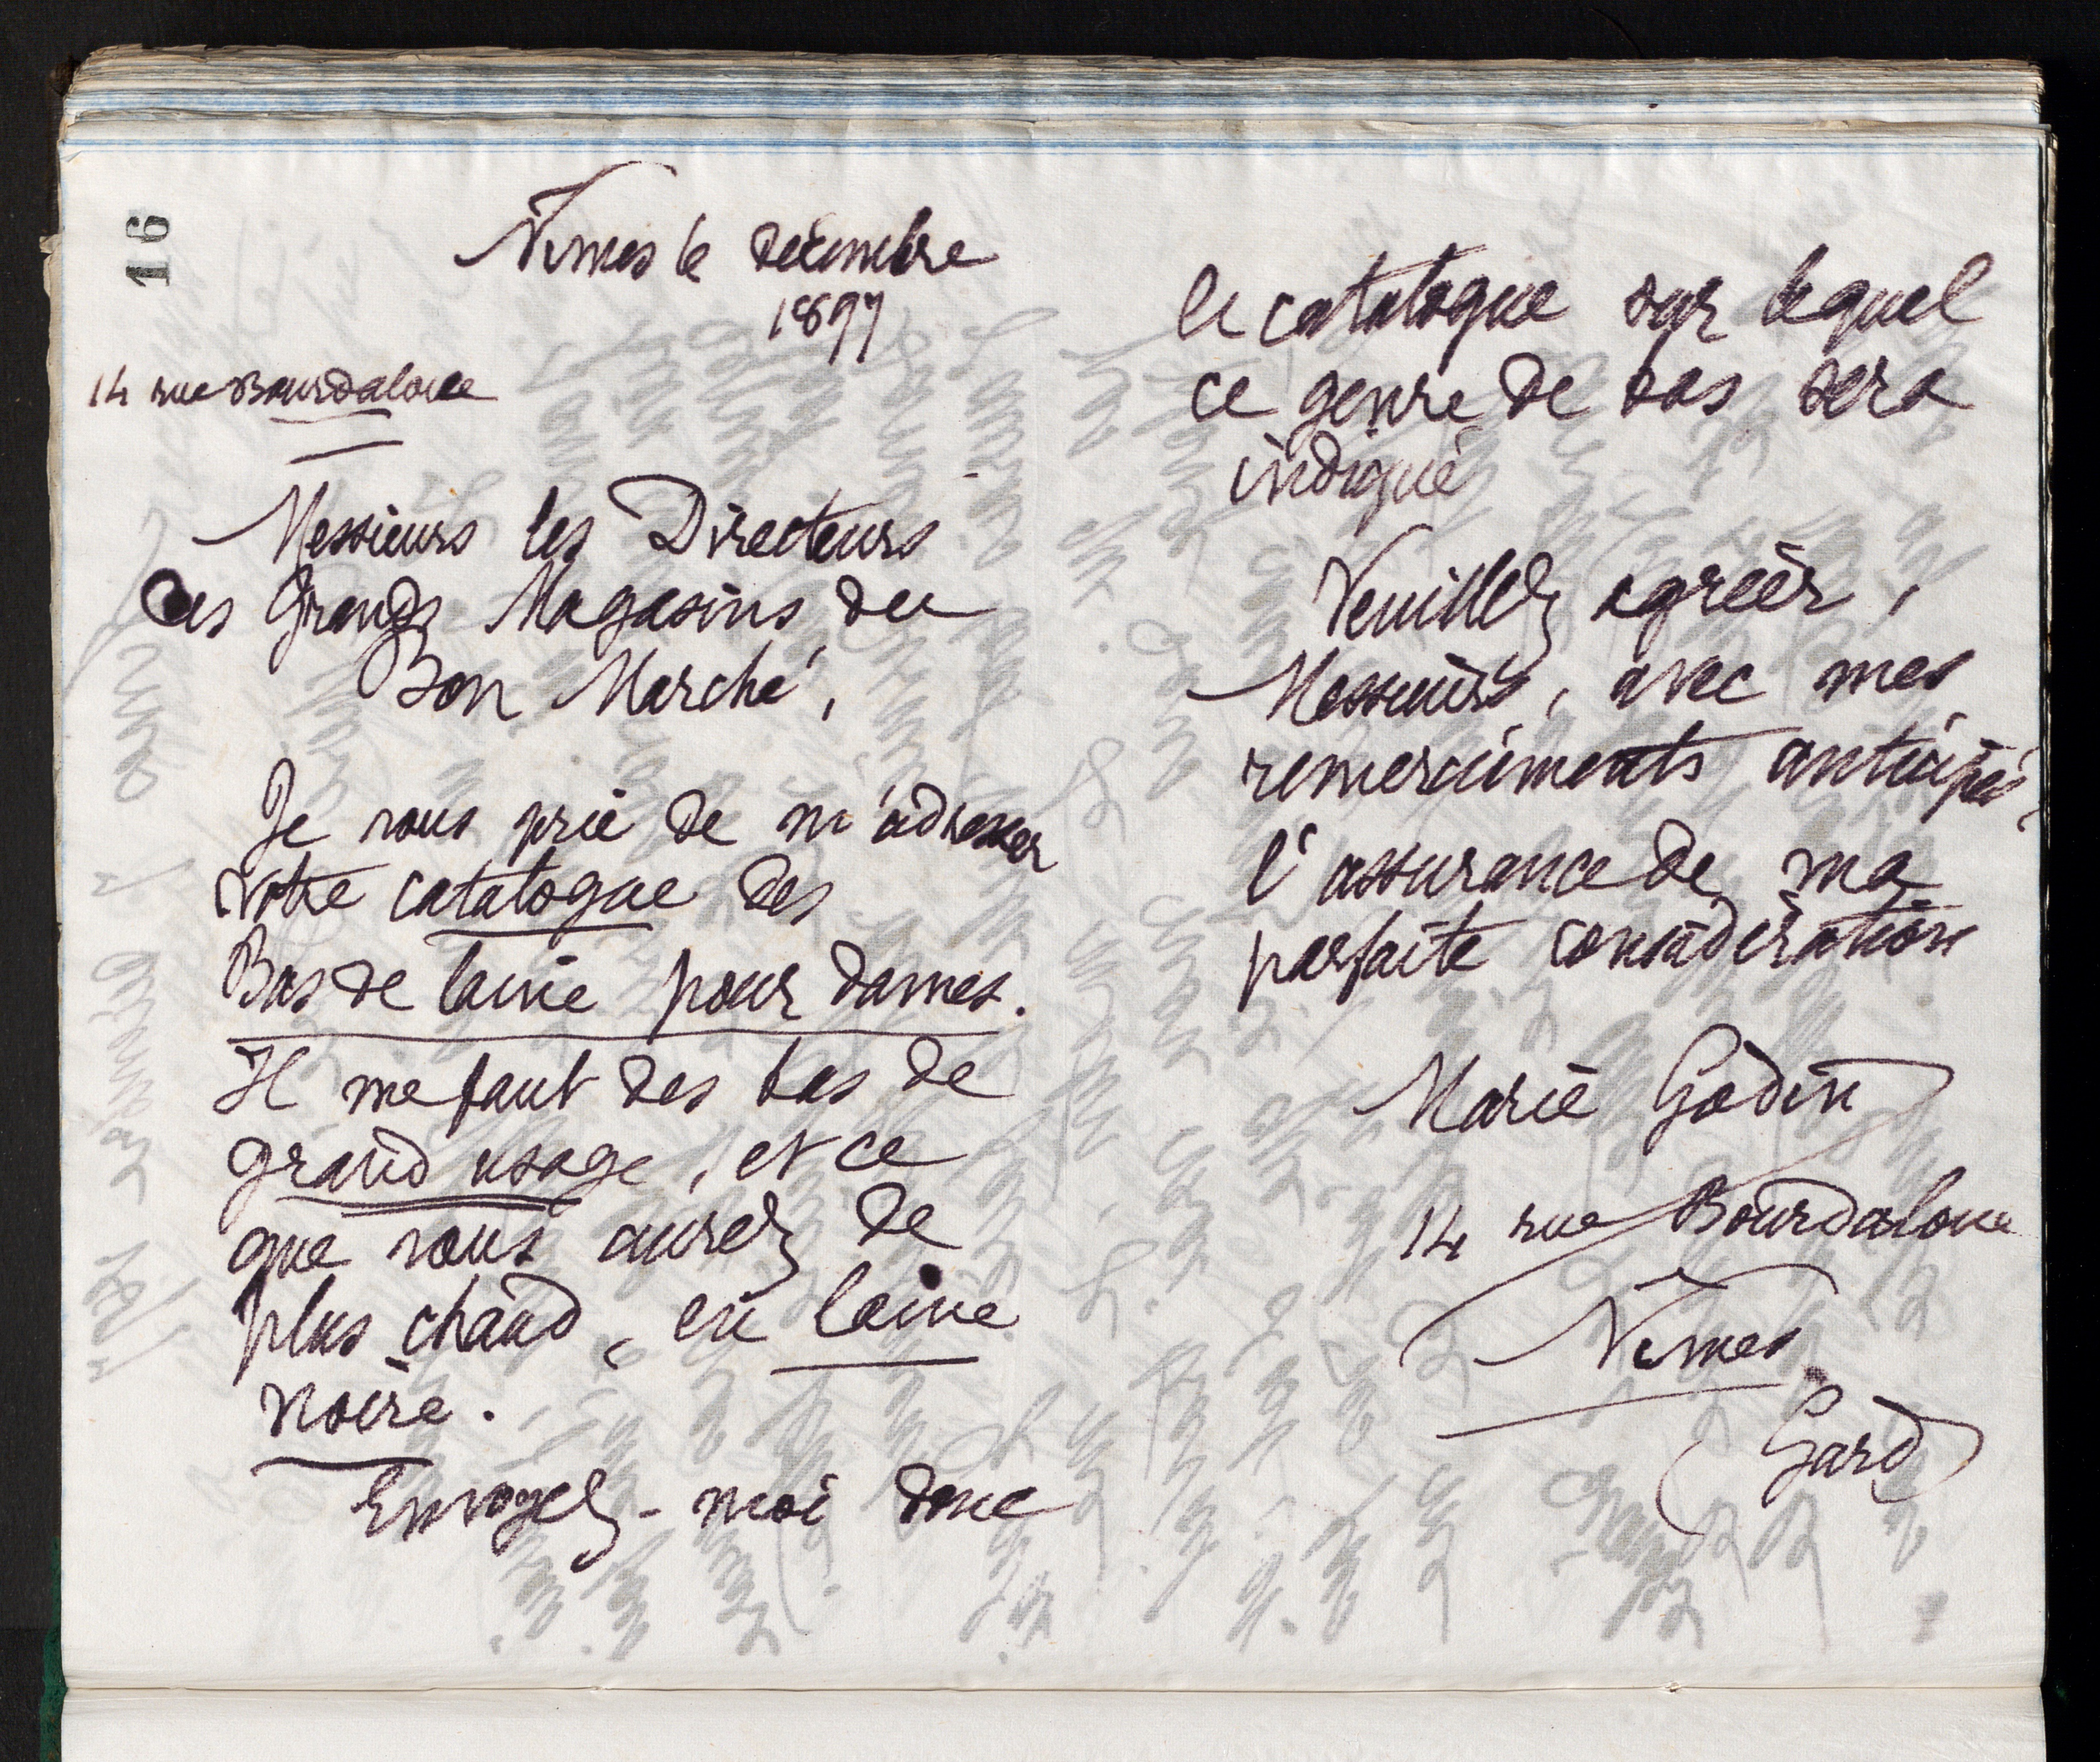 16
Nîmes le décembre
1897
14 rue Bourdaloue
Messieurs les Directeurs
des Grands Magasins du
Bon Marché,
Je vous prie de m'adresser
votre catalogue des
Bas de laine pour dames.
Il me faut des bas de
grand usage, et ce
que vous aurez de
plus chaud, en laine
noire.
Envoyez-moi donc
le catalogue sur lequel
ce genre de bas sera
indiqué
Veuillez agréér,
Messieurs, avec mes
remerciments anticipés,
l'assurance de ma
parfaite considération
Marie Godin
14 rue Bourdaloue
Nîmes
(Gard)